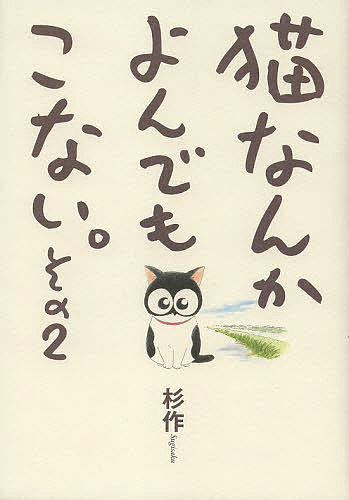 猫なんか
よんでも
こない。
その2
杉作
Sugisaku